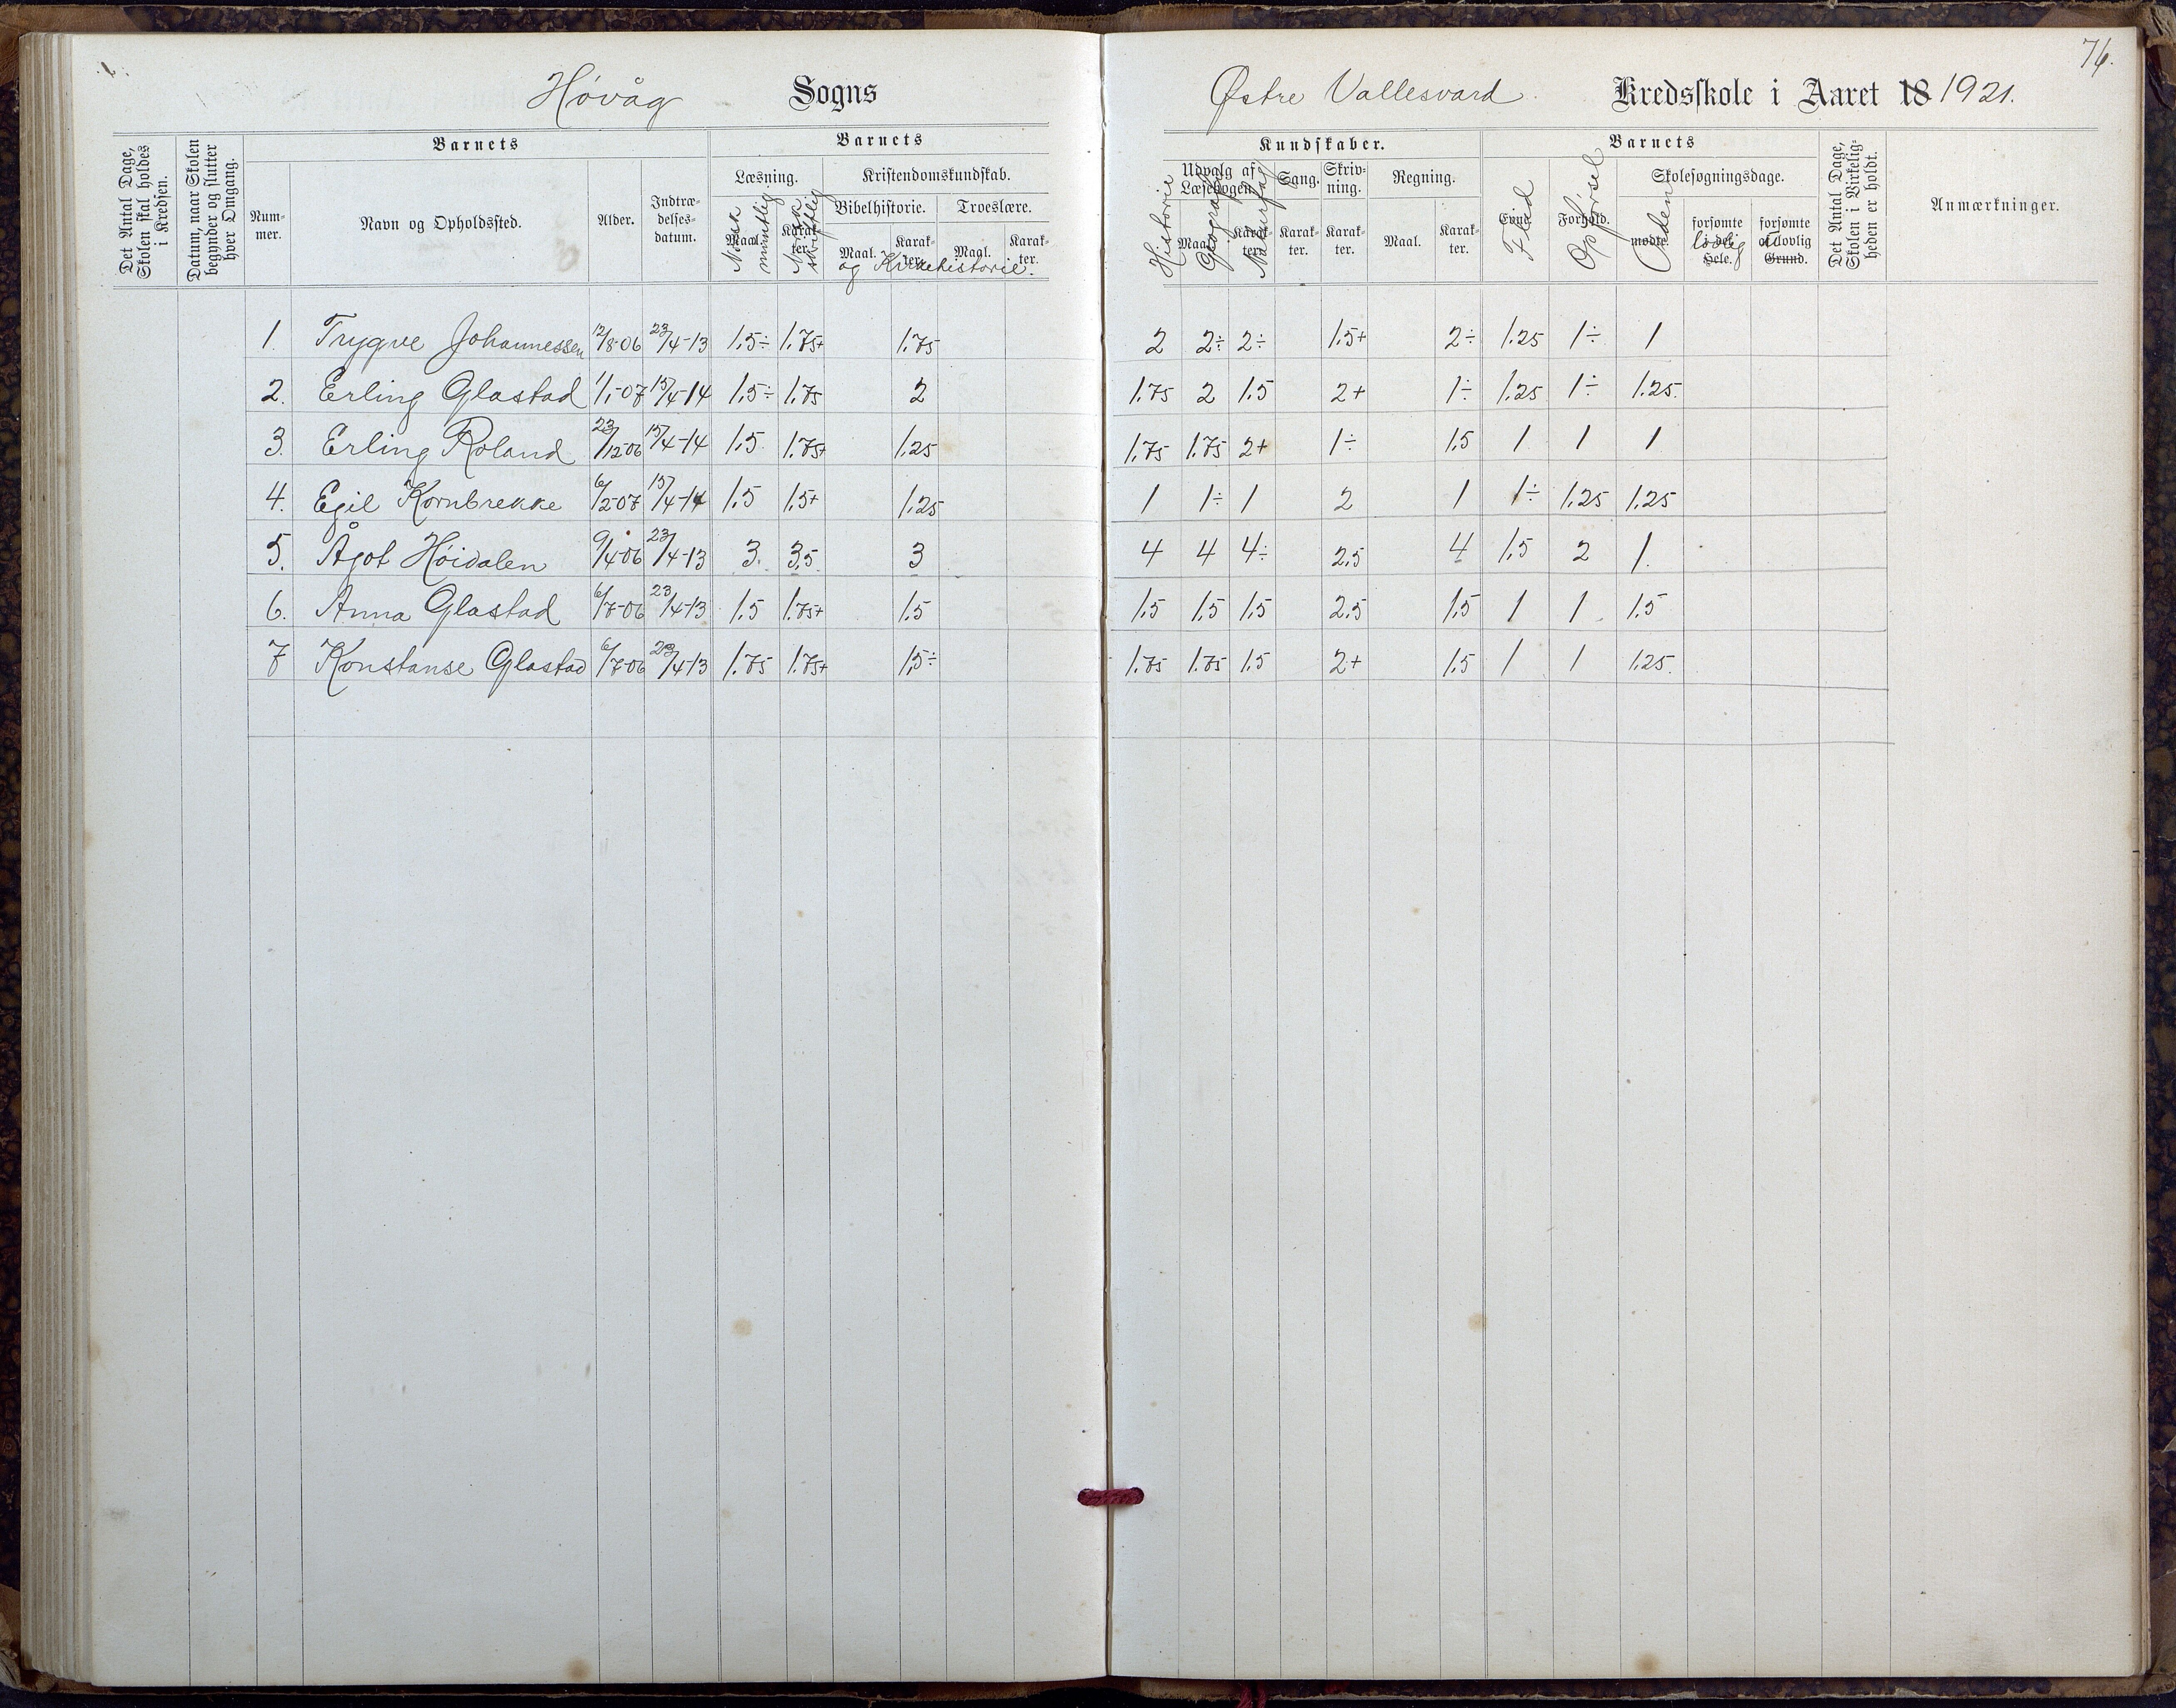 76.
Høvåg Sogns Østre Vallesvard Kredsskole i Aaret 18 1921.
Det Antal Dage, Skolen skal holdes i Kredsen.
Datum, naar Skolen begynder og slutter hver Omgang.
Barnets
Num-mer.
Navn og Opholdssted.
Alder.
Indtræ-delses-datum.
Barnets
Læsning.
Maal. Norsk muntlig
Karak-ter. Norsk skriftlig
Kristendomskundskab.
Bibelhistorie. Troeslære.
Maal. Karak-ter. Maal. Karak-ter.
og Kirkehistorie.
Kundskaber.
Historie
Udvalg af Læsebogen.
Maal. Geografi
Karak-ter. Naturfag
Sang. Karak-ter.
Skriv-ning. Karak-ter.
Regning.
Maal. Karak-ter.
Barnets
Evne. Flid
Forhold. Opførsel
Skolesøgningsdage.
mødte. Orden
forsømte i det Hele. lovlig
forsømte af lovlig Grund.
Det Antal Dage, Skolen i Virkelig-heden er holdt.
Anmærkninger.
1. Trygve Johannessen 12/8-06 23/4-13 1.5÷ 1.75+ 1.75 2 2÷ 2÷ 1.5+ 2÷ 1.25 1÷ 1
2. Erling Glastad 1/1-07 15/4-14 1.5÷ 1.75 2 1.75 2 1.5 2+ 1÷ 1.25 1÷ 1.25.
3. Erling Roland 23/12-06 15/4-14 1.5 1.75+ 1.25 1.75 1.75 2+ 1÷ 1.5 1 1 1
4. Egil Kornbrekke 6/2-07 15/4-14 1.5 1.5+ 1.25 1 1÷ 1 2 1 1÷ 1.25 1.25
5. Ågot Høidalen 9/4-06 23/4-13 3. 3.5 3 4 4 4÷ 2.5 4 1.5 2 1.
6. Anna Glastad 6/7-06 23/4-13 1.5 1.75+ 1.5 1.5 1.5 1.5 2.5 1.5 1 1 1.5
7 Konstanse Glastad 6/7-06 23/4-13 1.75 1.75+ 1.5÷ 1.75 1.75 1.5 2+ 1.5 1 1 1.25.